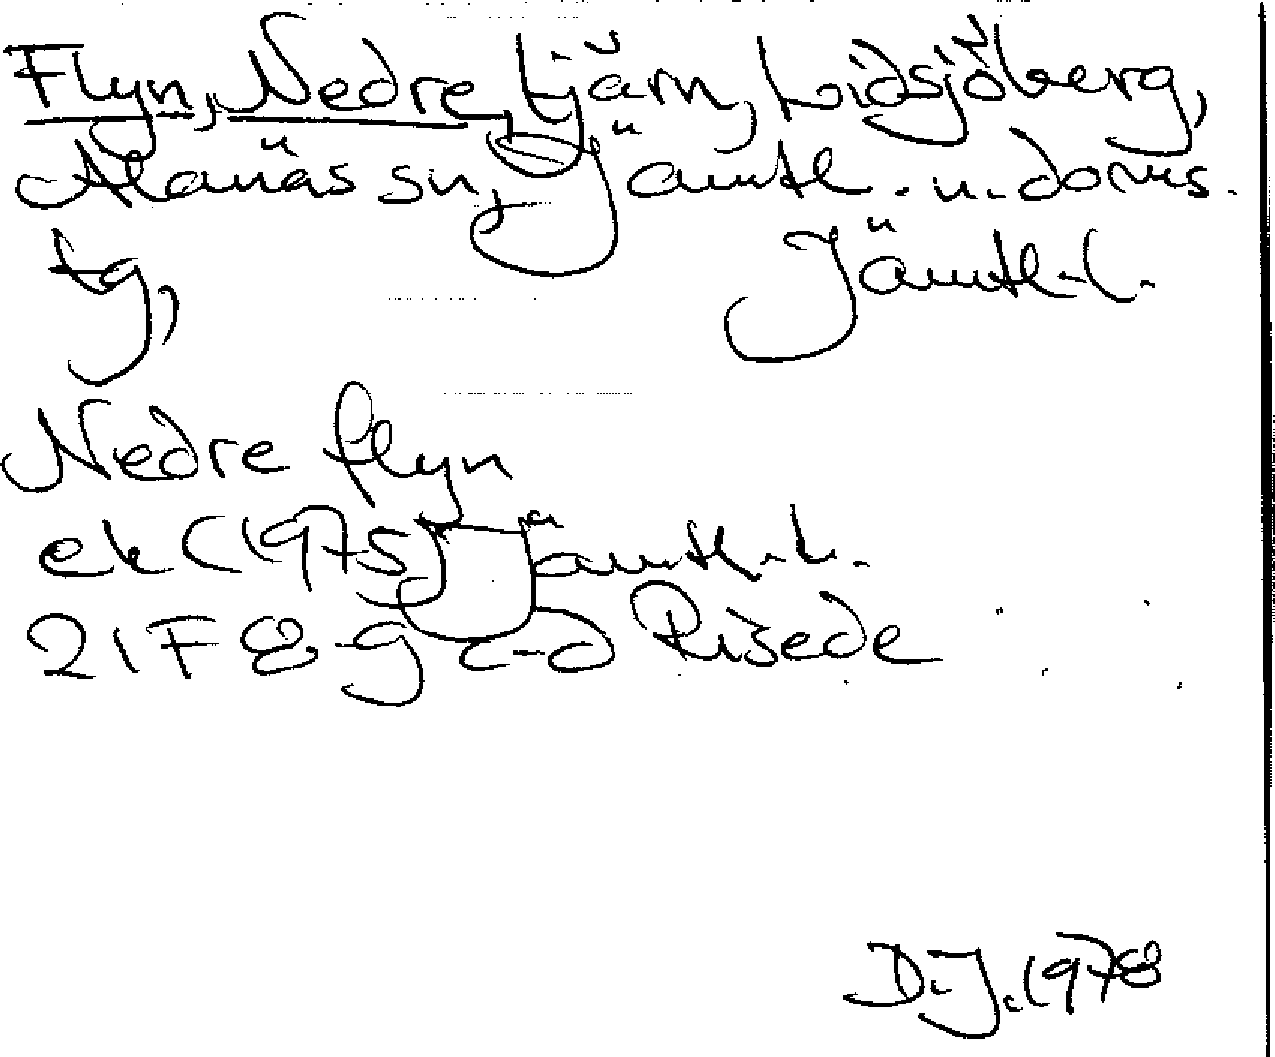 Flyn, Nedre, tjärn, Lidsjöberg,
Alanäs sn, Jämtl. n. doms.
tg, Jämtl. l.
Nedre flyn
ek (1975) Jämtl. L.
21F 8-9 c-d Risede
D.J. 1978